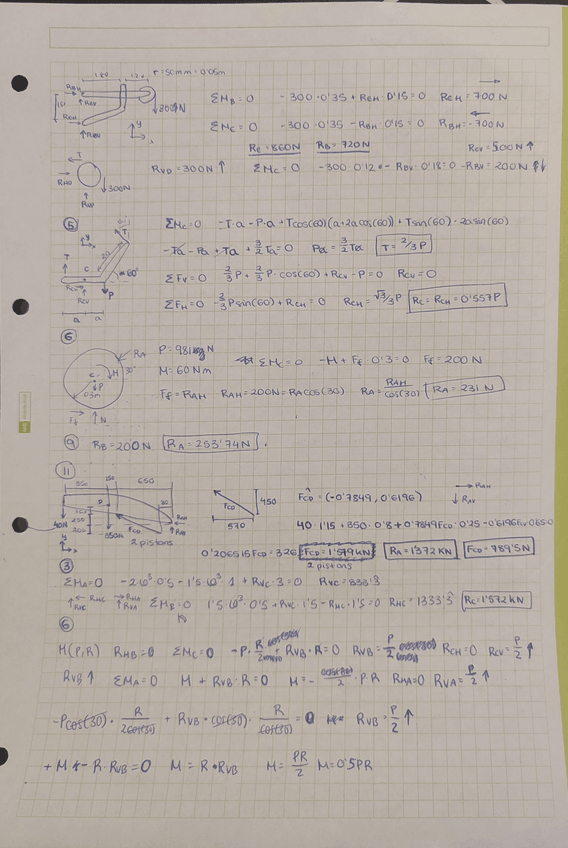 180 120 r=50mm=0'05m
RBH
RBV
300N
RCH
RBV
y
x
ΣMB=0 -300·0'35+RCH·0'15=0 RCH=700N
ΣMC=0 -300·0'35-RBH·0'15=0 RBH=-700N
RC=860N RB=720N RCV=500N↑
RVD=300N↑ ΣMC=0 -300·0'12 -RBV·0'18=0 -RBV=200N
T
300N
⑤ ΣMC=0 -T·a-P·a+Tcos(60)(a+2acos(60))+Tsin(60)·2asin(60)
-Ta-Pa+Ta+3/2Ta=0 Pa=3/2Ta T=2/3P
T
c
60°
RCH
RCV
P
a a
ΣFV=0 2/3P+2/3P·cos(60)+RCV-P=0 RCV=0
ΣFH=0 -2/3Psin(60)+RCH=0 RCH=√3/3P RC=RCH=0'557P
⑥
RA P=981N ΣMC=0 -M+Ff·0'3=0 Ff=200N
M=60Nm
c M 30°
P
0'3m
Ff N
Ff=RAH RAH=200N=RAcos(30) RA=RAH/cos(30) RA=231N
⑨ RB=200N RA=253'74N.
⑪
350 150 650
D
40N
850N
2 pistons
RAH
RAV
FCD
450
570
FCD=(-0'7849, 0'6196) → RAH
↓ RAV
40·1'15+850·0'8+0'7849FCD·0'25-0'6196FCD·0'650
0'206515FCD=726 FCD=1'579KN RA=1'372KN FCD=789'5N
2 pistons
③
ΣMA=0 -2·10³·0'5-1'5·10³·1+RVC·3=0 RVC=833'3
ΣMB=0 1'5·10³·0'5+RVC·1'5-RHC·1'5=0 RHC=1333'3 RC=1'572KN
⑥
M(P,R) RHB=0 ΣMC=0 -P·R/2+RVB·R=0 RVB=P/2 RCH=0 RCV=P/2↑
RVB↑ ΣMA=0 M+RVB·R=0 M=-/2·P·R RHA=0 RVA=P/2↑
-Pcos(30)·R/2cos(30)+RVB·cos(30)·R/cos(30)=0 RVB=P/2↑
+M-R·RVB=0 M=R·RVB M=PR/2 M=0'5PR